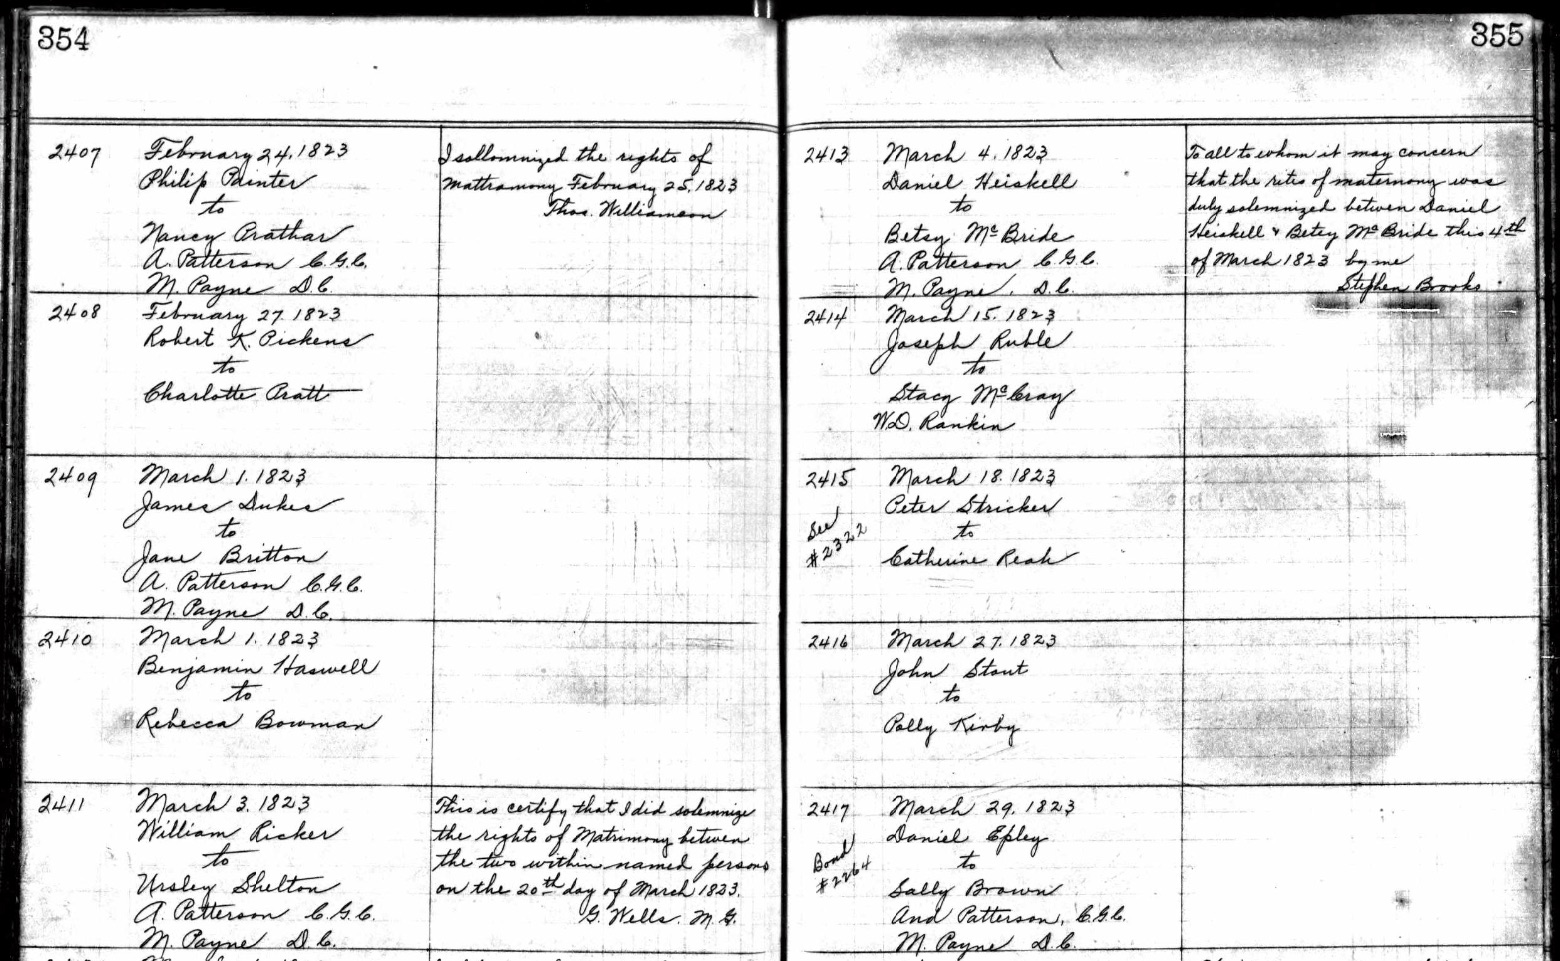 354
2407
February 24, 1823
Philip Painter
to
Nancy Prathar
A. Patterson C.G.C.
M. Payne D.C.
I sollomnized the rights of
Mattramony February 25, 1823
Thos. Williamson
2408
February 27. 1823
Robert K. Pickens
to
Charlotte Pratt
2409
March 1. 1823
James Dukes
to
Jane Britton
A. Patterson C.G.C.
M. Payne D.C.
2410
March 1. 1823
Benjamin Haswell
to
Rebecca Bowman
2411
March 3. 1823
William Ricker
to
Ursley Shelton
A. Patterson C.G.C.
M. Payne D.C.
This is certify that I did solemnize
the rights of Matrimony between
the two within named persons
on the 20th day of March 1823.
G. Wells. M.G.
355
2413
March 4. 1823
Daniel Heiskell
to
Betsy McBride
A. Patterson C.G.C.
M. Payne. D.C.
To all to whom it may concern
that the rites of maternony was
duly solemnized betwen Daniel
Heiskell & Betsy McBride this 4th
of March 1823 by me
Stephen Brooks
2414
March 15. 1823
Joseph Ruble
to
Stacy McCray
W.D. Rankin
2415
See
#2322
March 18. 1823
Peter Stricker
to
Catherine Reak
2416
March 27. 1823
John Stout
to
Polly Kirby
2417
Bond
#2264
March 29. 1823
Daniel Epley
to
Sally Brown
And Patterson, C.G.C.
M. Payne D.C.